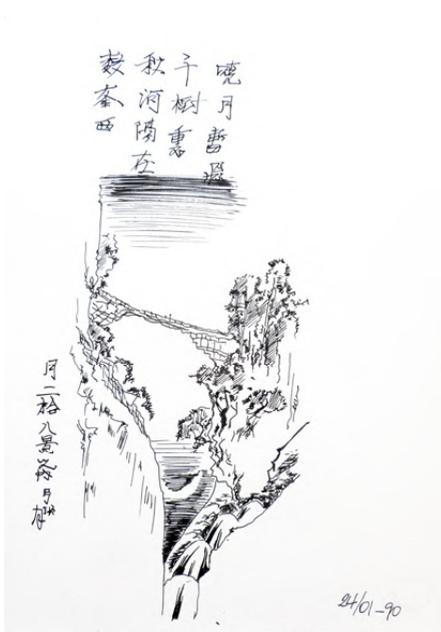 曉月暫飛
千樹裏
秋河隔在
數峯西
月二八景月
24/01-90